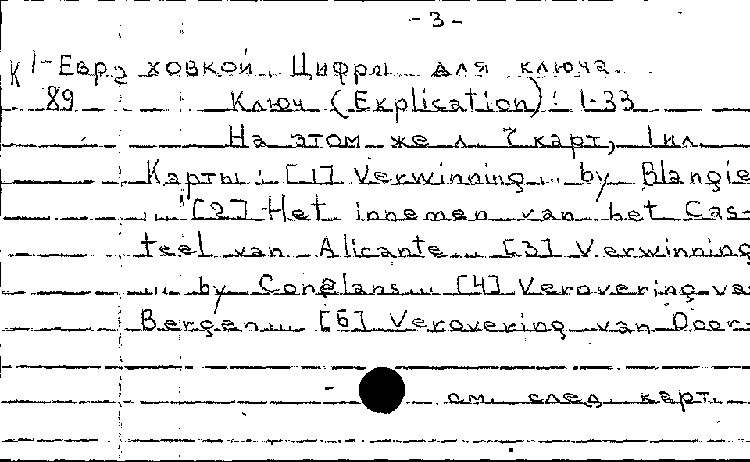 -3-
К 1-Евр 2 ховкой. Цифры для ключа.
89 Ключ (Explication): 1-33
На этом же л. 7 карт, 1 ил.
Карты: [1] Verwinning... by Blangie
... [2] Het innemen van het Cas-
teel van Alicante... [3] Verwinning
... by Conflans... [4] Verovering va
Bergen... [5] Verovering van Door-
см. след. карт.